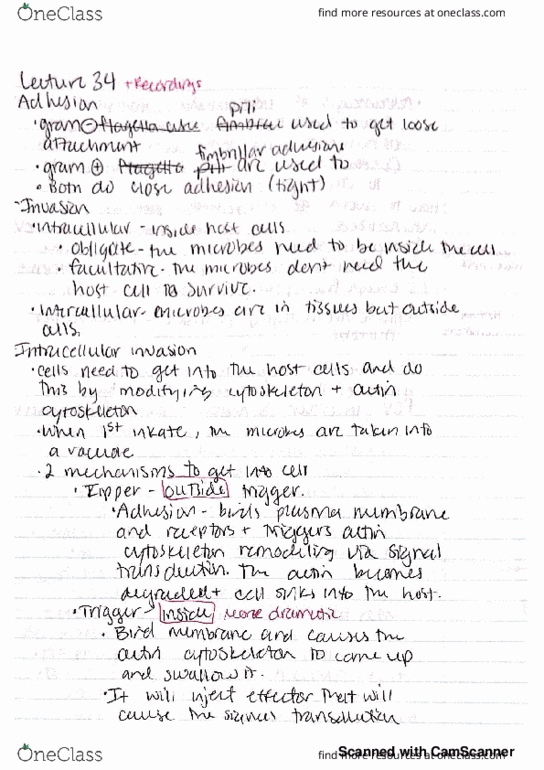 OneClass
find more resources at oneclass.com
Lecture 34 +Recordings
Adhesion
pili
• gram ⊖ flagella use fimbrae used to get loose
attachment
fimbrillar adhesions
• gram ⊕ flagella pili are used to
• Both do close adhesion (tight)
Invasion
• intracellular - inside host cells
• obligate - the microbes need to be inside the cell
• facultative - the microbes don't need the
host cell to survive.
• Intercellular - microbes are in tissues but outside
cells.
Intracellular invasion
• cells need to get into the host cells and do
this by modifying cytoskeleton + actin
cytoskeleton
• when 1st, the microbes are taken into
a vacuole
• 2 mechanisms to get into cell
• Zipper - outside trigger.
• Adhesion - binds plasma membrane
and receptors + triggers actin
cytoskeleton remodeling via signal
transduction. The actin becomes
degraded + cell sinks into the host.
• Trigger - inside more dramatic
• Bind membrane and causes the
actin cytoskeleton to come up
and swallow it.
• It will inject effector that will
cause the transduction
OneClass
find more resources at oneclass.com
Scanned with CamScanner